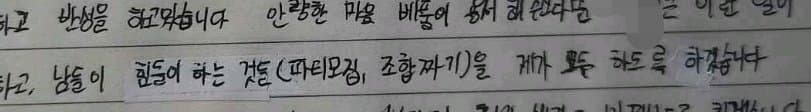 하고 반성을 하고있습니다 안량한 마음 베풀어 용서 해 주신다면 는 이런 일이
하고, 남들이 힘들어 하는 것들(파티모집, 조합짜기)을 제가 모두 하도록 하겠습니다